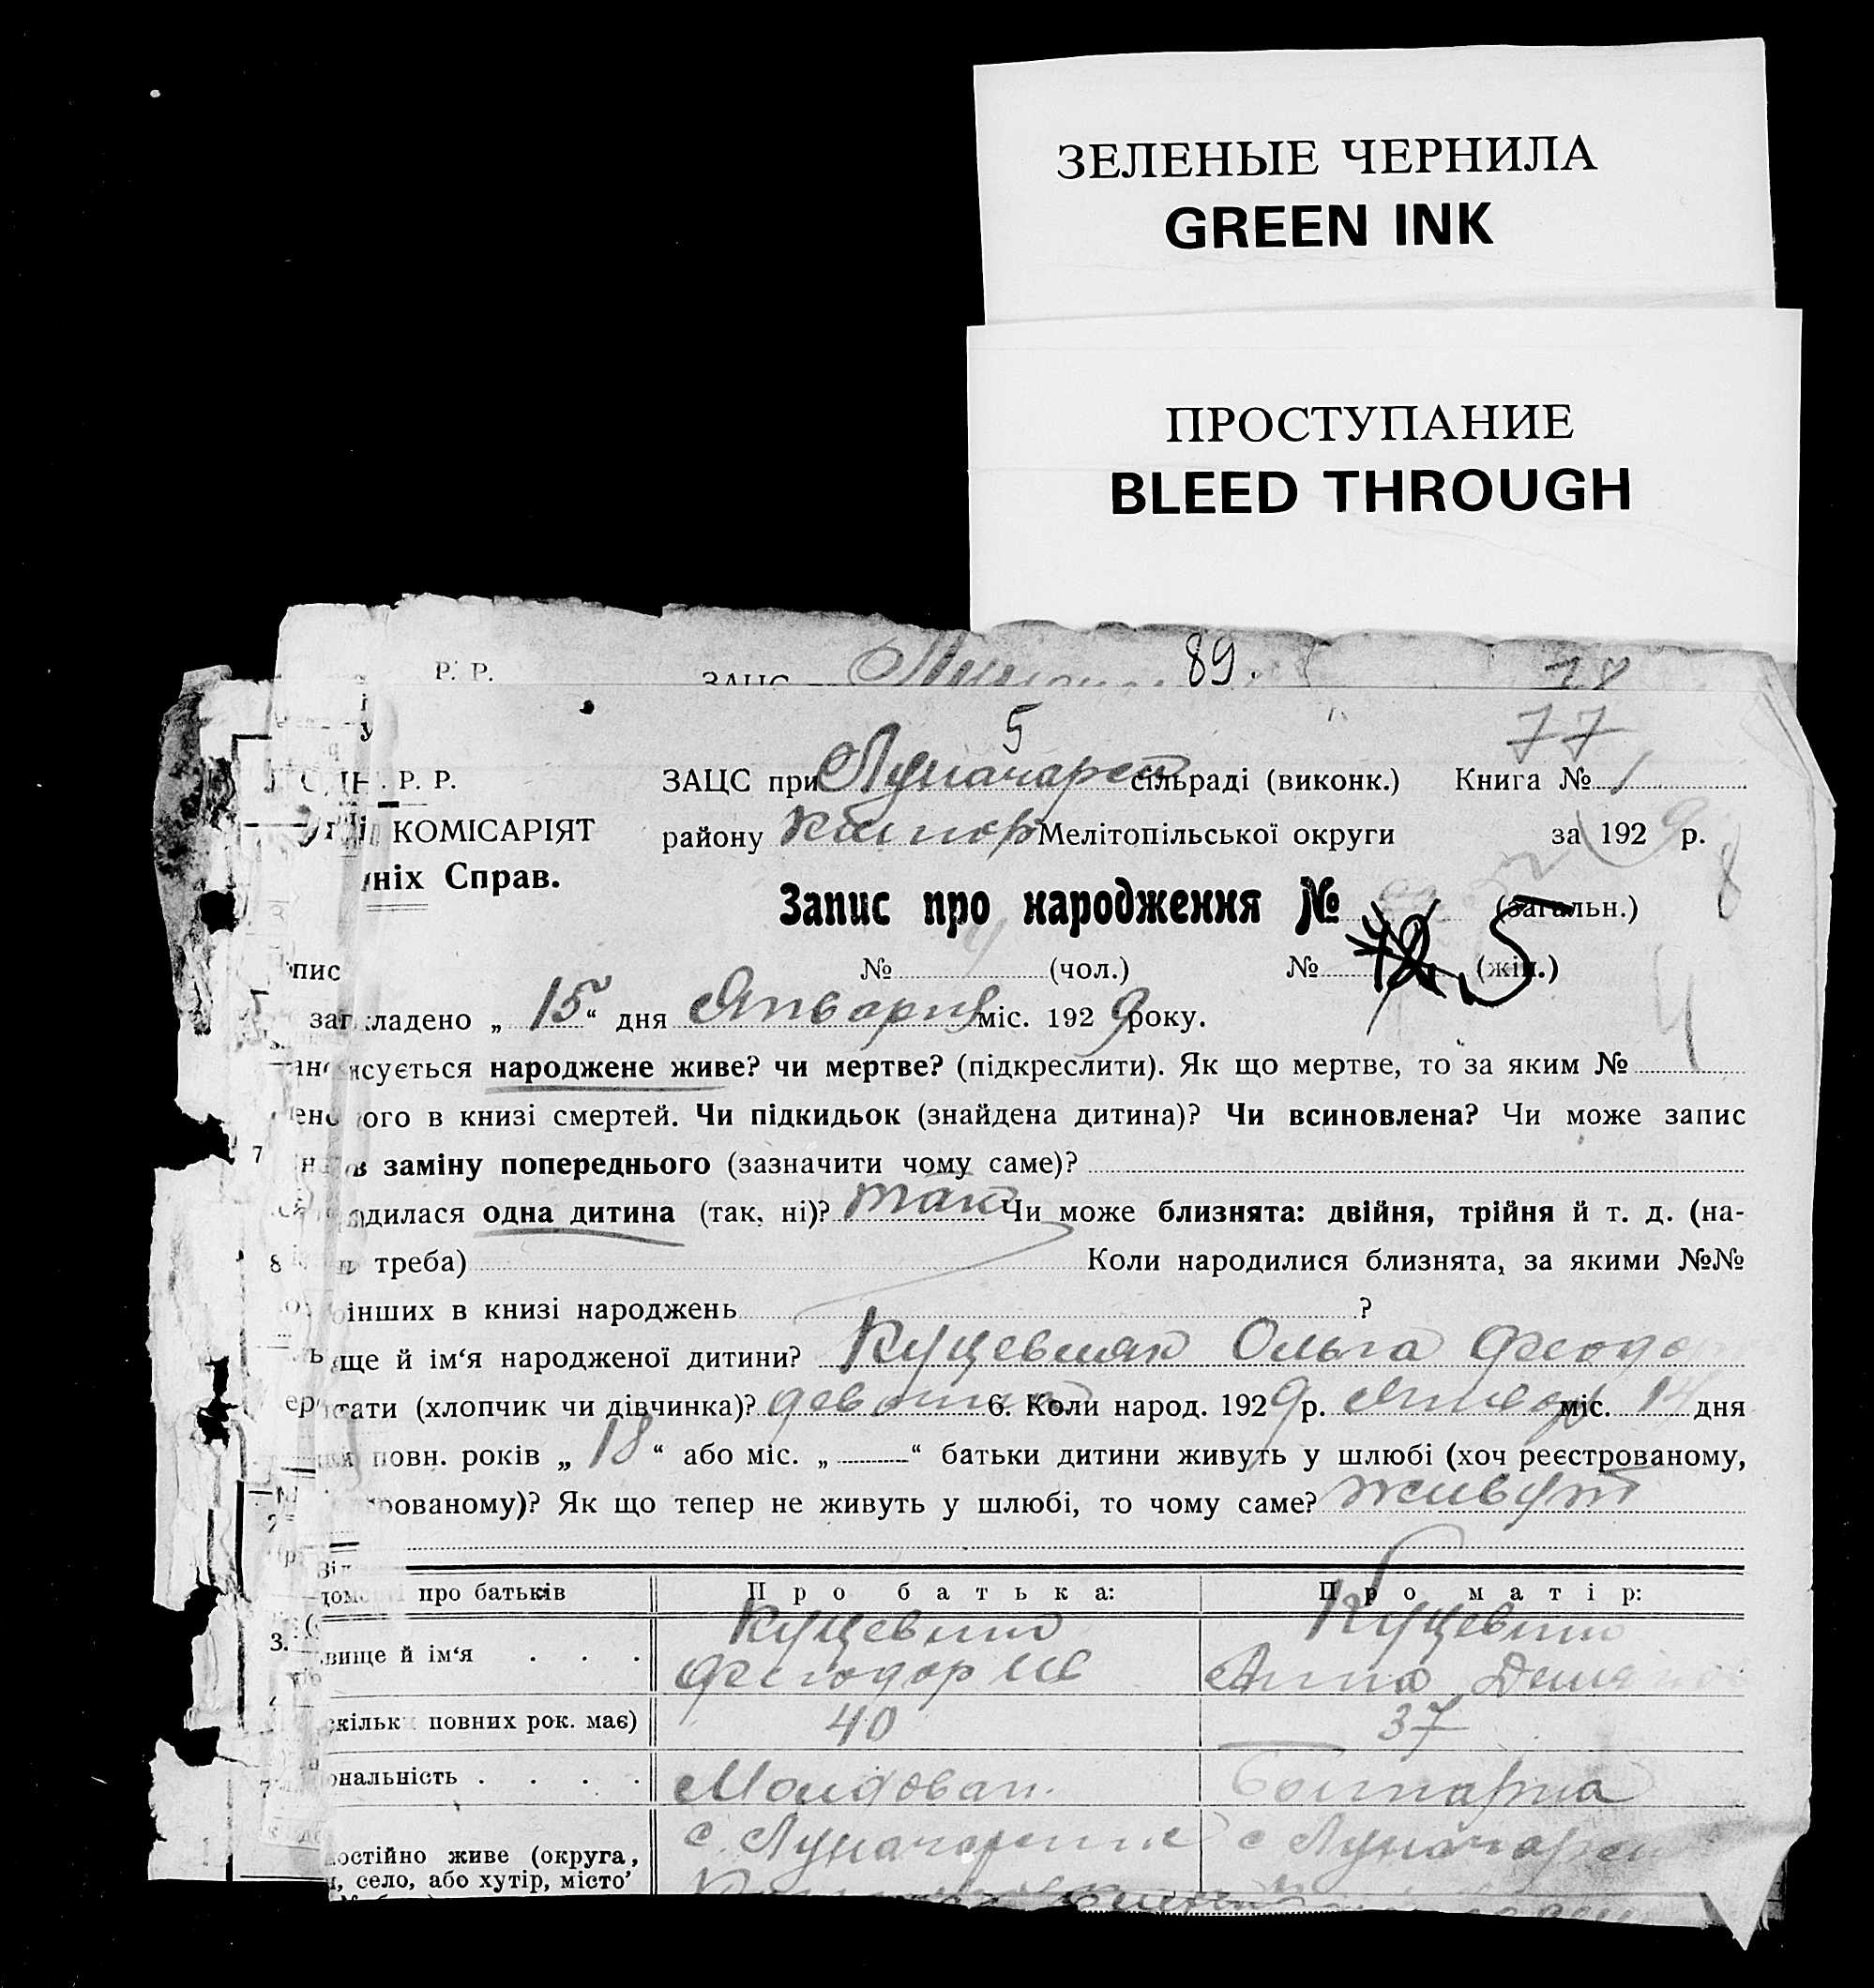 ЗЕЛЕНЫЕ ЧЕРНИЛА
GREEN INK
ПРОСТУПАНИЕ
BLEED THROUGH
Р. Р. ЗАЦС 89. 78
77
5
Р. Р. ЗАЦС при Луначарск сільраді (виконк.) Книга № 1
КОМІСАРІЯТ району Мелітопільської округи за 1929 р.
ніх Справ.
Запис про народження № (загальн.)
пис № (чол.) № 5 (жін.)
кладено „ 15 “ дня Января міс. 1929 року.
сується народжене живе? чи мертве? (підкреслити). Як що мертве, то за яким №
ого в книзі смертей. Чи підкидьок (знайдена дитина)? Чи всиновлена? Чи може запис
в заміну попереднього (зазначити чому саме)?
дилася одна дитина (так, ні)? так Чи може близнята: двійня, трійня й т. д. (на-
треба) Коли народилися близнята, за якими №№
інших в книзі народжень ?
ще й ім‘я народженої дитини? Ольга Феодо
стати (хлопчик чи дівчинка)? 6. Коли народ. 1929 р. міс. 14 дня
повн. років „ 18 “ або міс. „ “ батьки дитини живуть у шлюбі (хоч реєстрованому,
рованому)? Як що тепер не живуть у шлюбі, то чому саме? живут
про батьків Про батька: Про матір:
вище й ім‘я . . .
Феодор Ив Анна
скільки повних рок. має) 40 37
ональність . . . . Молдован. Болгарка
с. Луначарское с Луначарск
остійно живе (округа,
село, або хутір, місто